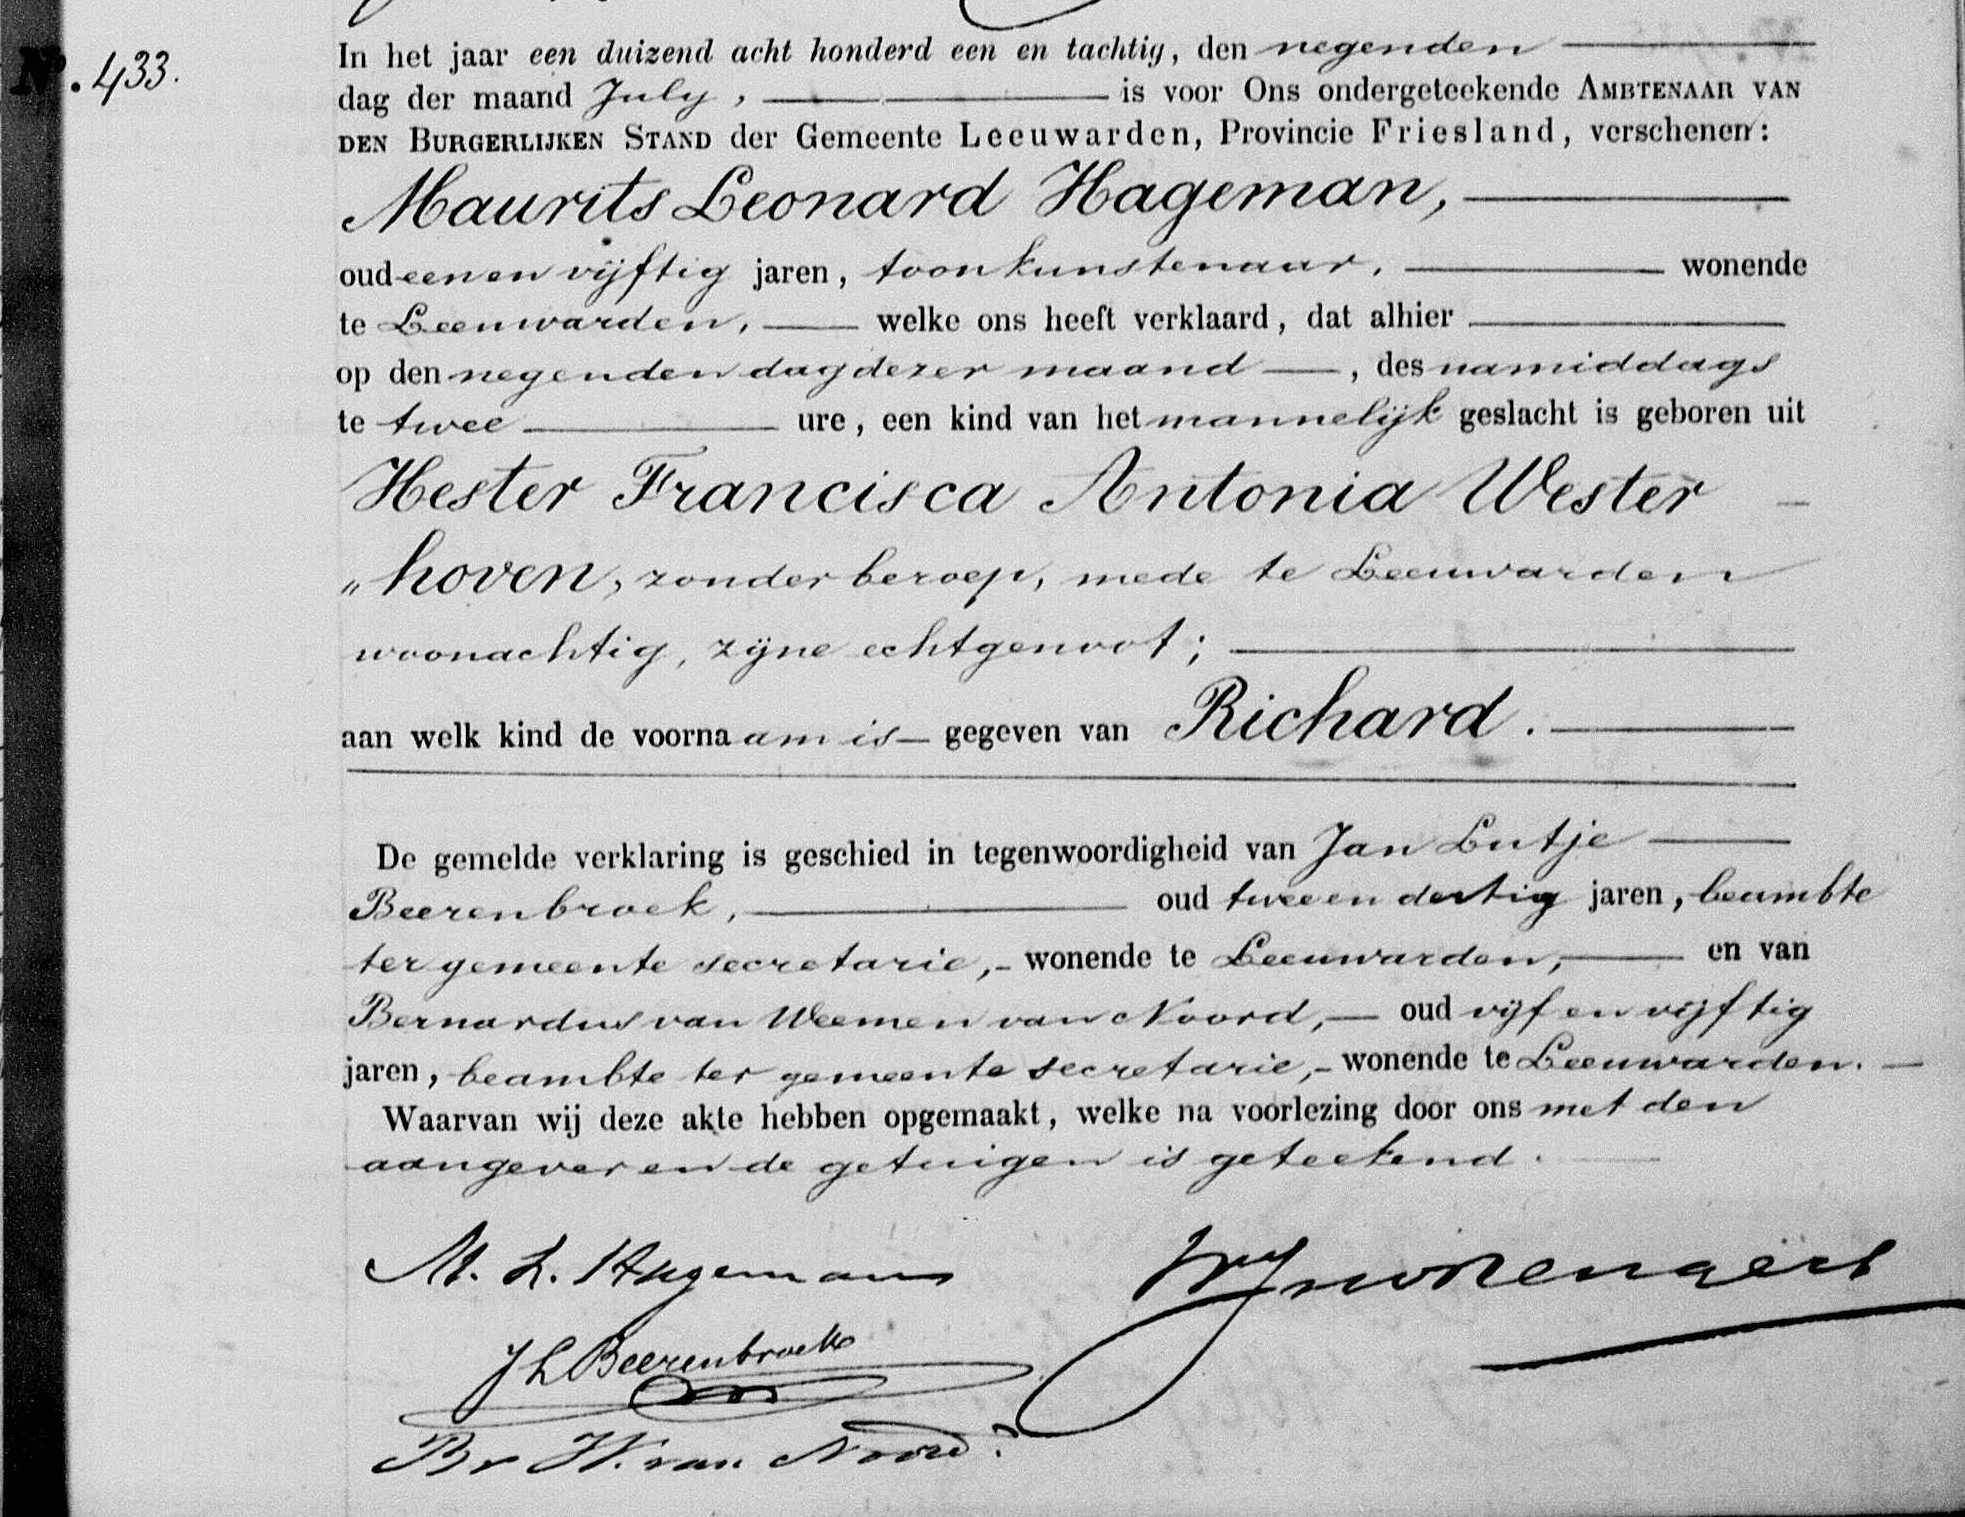 No. 433.
In het jaar een duizend acht honderd een en tachtig, den negenden
dag der maand July, is voor Ons ondergeteekende AMBTENAAR VAN
DEN BURGERLIJKEN STAND der Gemeente Leeuwarden, Provincie Friesland, verschenen:
Maurits Leonard Hageman,
oud een en vijftig jaren, toonkunstenaar, wonende
te Leeuwarden, welke ons heeft verklaard, dat alhier
op den negenden dag dezer maand, des namiddags
te twee ure, een kind van het mannelijk geslacht is geboren uit
Hester Francisca Antonia Wester
„hoven, zonder beroep, mede te Leeuwarden
woonachtig, zijne echtgenoot;
aan welk kind de voornaam is gegeven van Richard.
De gemelde verklaring is geschied in tegenwoordigheid van Jan Lutje
Beerenbroek, oud twee en dertig jaren, beambte
ter gemeente secretarie, wonende te Leeuwarden, en van
Bernardus van Weemen van Noord, oud vijf en vijftig
jaren, beambte ter gemeente secretarie, wonende te Leeuwarden.
Waarvan wij deze akte hebben opgemaakt, welke na voorlezing door ons met den
aangever en de getuigen is geteekend.
M. L. Hageman
J L Beerenbroek
Br W. van Noord